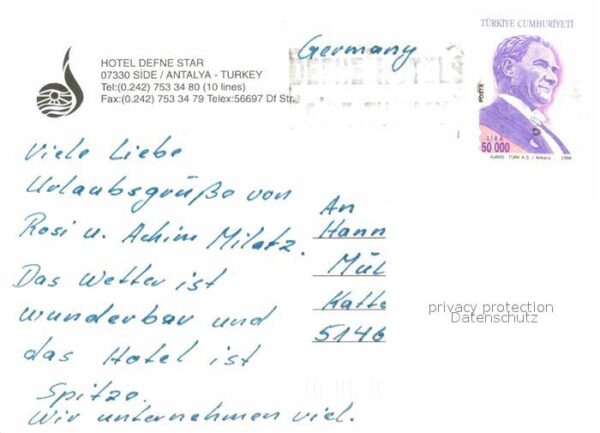 Germany
TÜRKİYE CUMHURİYETİ
POSTA
LİRA
50 000
AJANS - TÜRK A.Ş. / Ankara 1994
HOTEL DEFNE STAR
07330 SİDE / ANTALYA - TURKEY
Tel:(0.242) 753 34 80 (10 lines)
Fax:(0.242) 753 34 79 Telex:56697 Df Str.
DEFNE HOTELS
Viele Liebe
Urlaubsgrüße von
Rosi u. Achim Milatz.
Das Wetter ist
wunderbar und
das Hotel ist
Spitze.
Wir unternehmen viel.
An
Hann
Mül
Katte
5146
privacy protection
Datenschutz